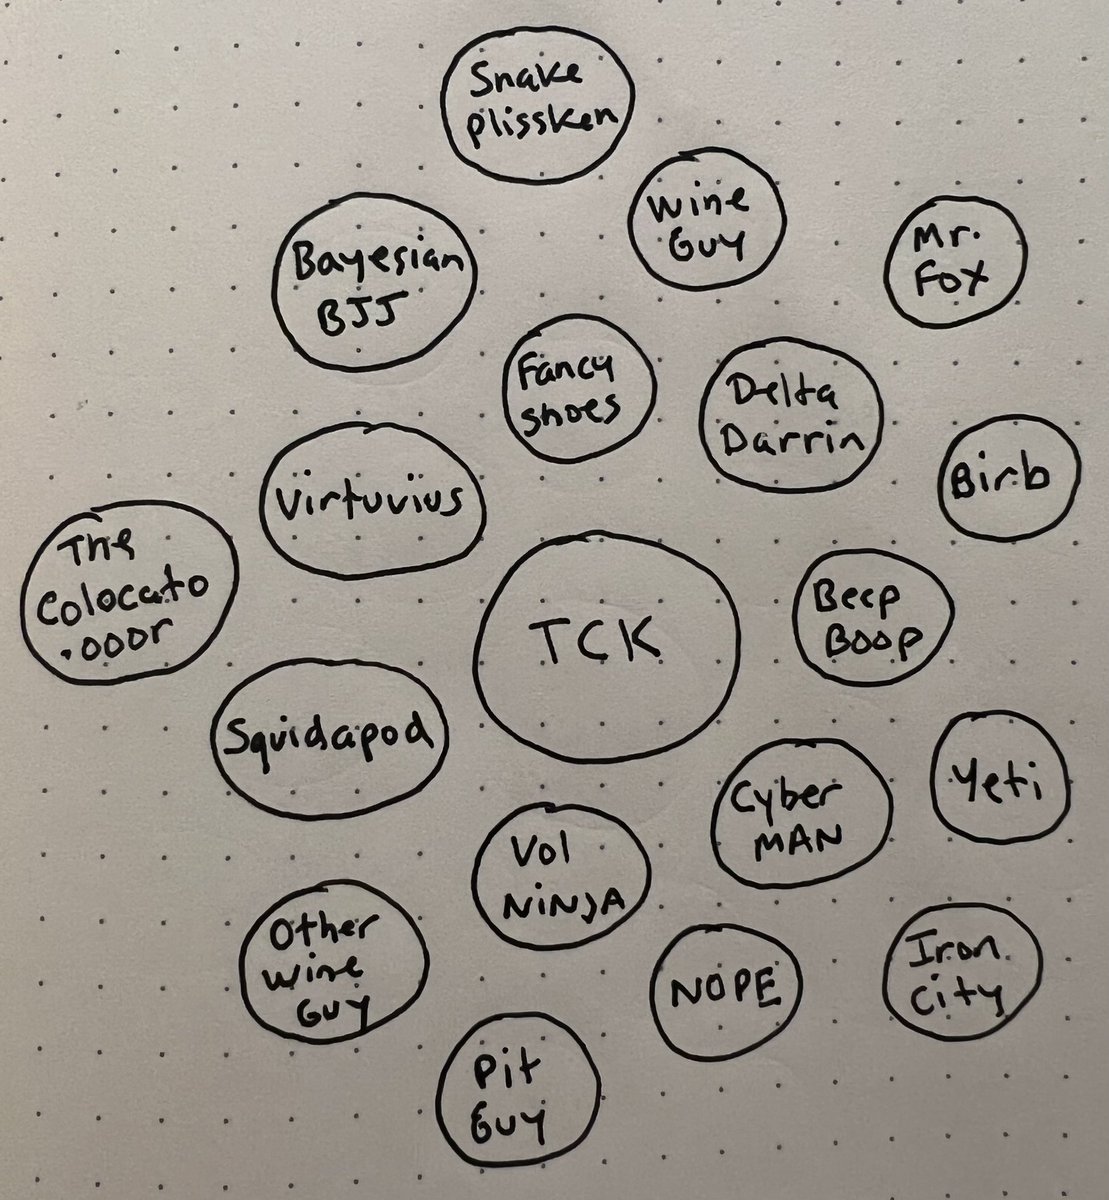 Snake
plissken
Wine
Guy
Mr.
Fox
Bayesian
BJJ
Fancy
shoes
Delta
Darrin
Birb
Virtuvius
The
Colocato
.ooor
TCK
Beep
Boop
Squidapod
Cyber
MAN
Yeti
Vol
NiNJA
Other
wine
Guy
NOPE
Iron
City
Pit
Guy